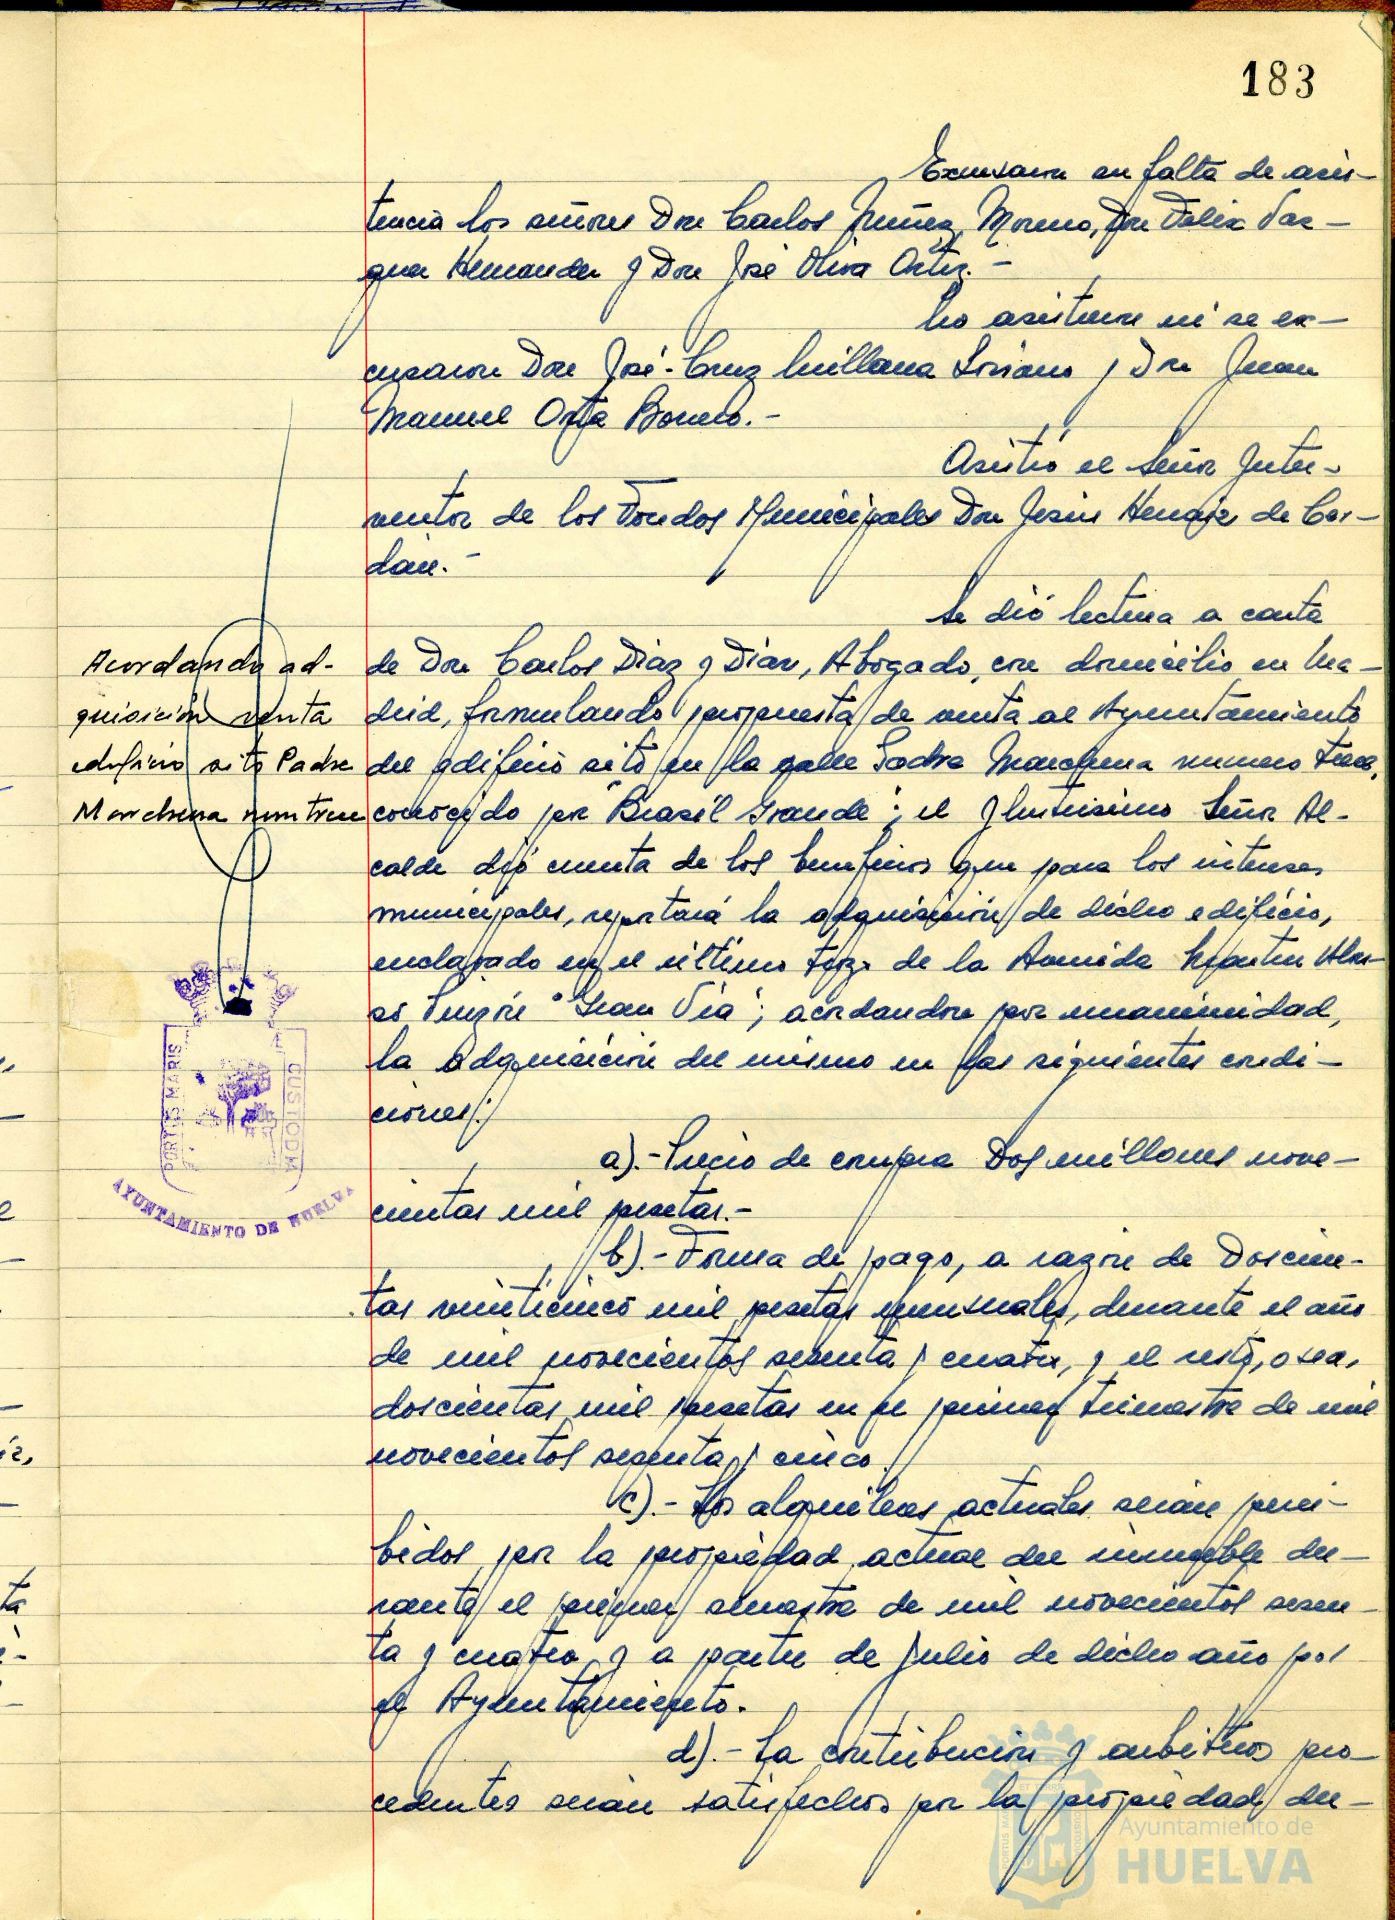 183
Excusaron su falta de asis-
tencia los señores Don Carlos Núñez Moreno, Don Félix Vaz-
quez Hernandez y Don José Oliva Ortiz.-
No asistieron ni se ex-
cusaron Don José-Cruz Millana Soriano y Don Juan
Manuel Orta Borrero.-
Asistió el Señor Inter-
ventor de los Fondos Municipales Don Jesús Henares de
-
Se dió lectura a carta
Acordando ad-
quisición venta
edificio sito Padre
Marchena num trece
de Don Carlos Díaz y Díaz, Abogado, con domicilio en Ma-
drid, formulando propuesta de venta al Ayuntamiento
del edificio sito en la calle Padre Marchena numero trece,
conocido por "Brasil Grande"; el Ilustrisimo Señor Al-
calde dió cuenta de los beneficios que para los intereses
municipales, reportará la adquisición de dicho edificio,
enclavado en el último trozo de la Avenida Martin Alon-
so Pinzón "Gran Vía"; acordandose por unanimidad,
la adquisición del mismo en las siguientes condi-
ciones:
a).- Precio de compra Dos millones nove-
cientas mil pesetas.-
b).- Forma de pago, a razón de Doscien-
tas veinticinco mil pesetas mensuales, durante el año
de mil novecientos sesenta y cuatro, y el resto, o sea,
doscientas mil pesetas en el primer trimestre de mil
novecientos sesenta y cinco.
c).- Los alquileres actuales serán perci-
bidos por la propiedad actual del inmueble du-
rante el primer semestre de mil novecientos sesen-
ta y cuatro y a partir de Julio de dicho año por
el Ayuntamiento.
d).- La contribución y arbitrios pro-
cedentes serán satisfechos por la propiedad du-
PORTUS MARIS
CUSTODIA
AYUNTAMIENTO DE HUELVA
Ayuntamiento de
HUELVA